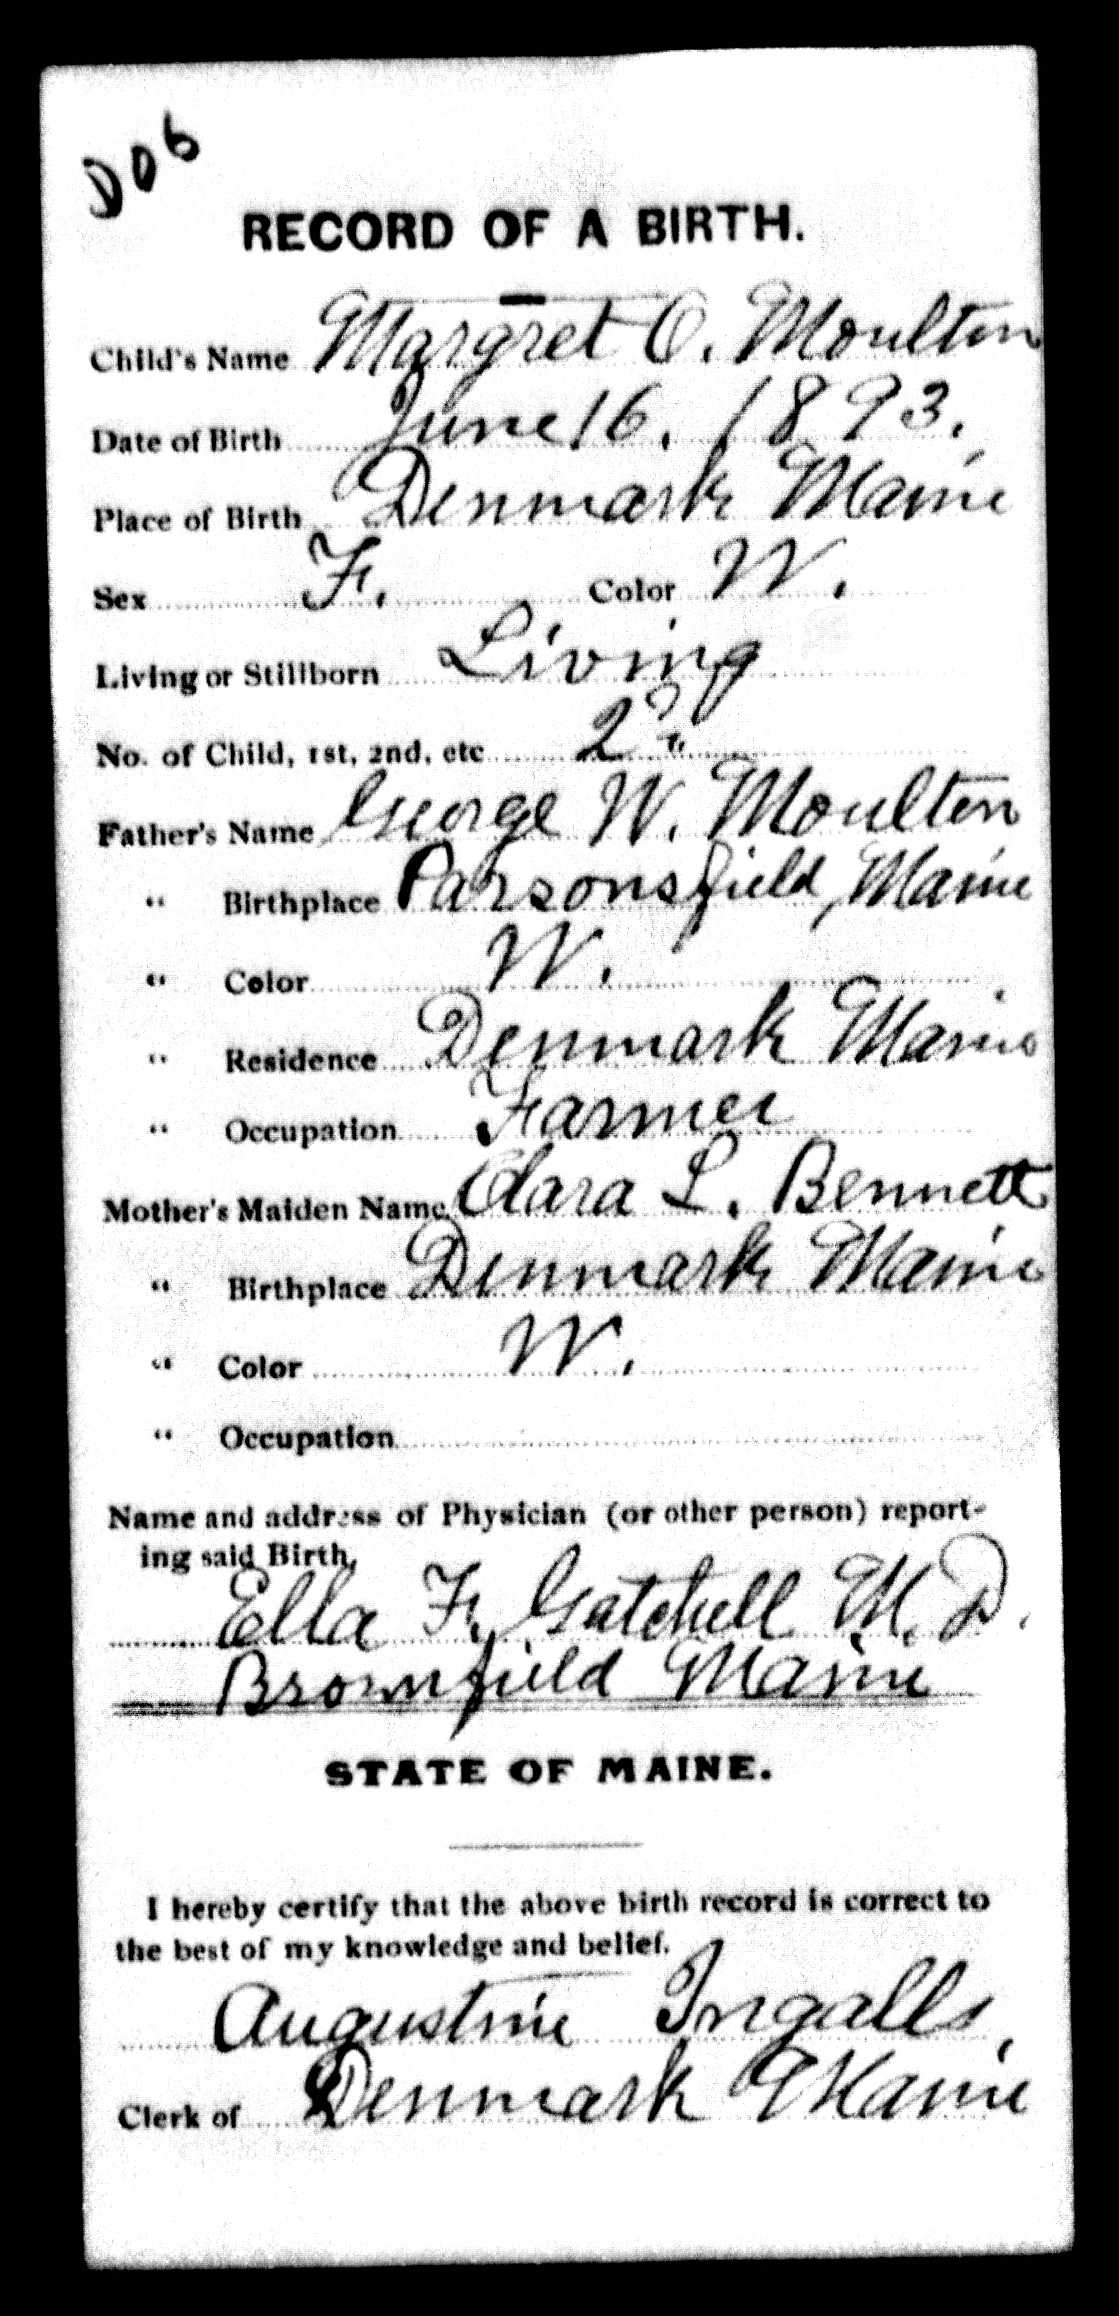 D06
RECORD OF A BIRTH.
Child's Name Margret O. Moulton
Date of Birth June 16. 1893.
Place of Birth Denmark Maine
Sex F. Color W.
Living or Stillborn Living
No. of Child, 1st, 2nd, etc 2
Father's Name George W. Moulton
" Birthplace Parsonsfield, Maine
" Color W.
" Residence Denmark Maine
" Occupation Farmer
Mother's Maiden Name Clara L. Bennett
" Birthplace Denmark Maine
" Color W.
" Occupation
Name and address of Physician (or other person) report-
ing said Birth,
Ella F. Gatchell M. D.
Brownfield Maine
STATE OF MAINE.
I hereby certify that the above birth record is correct to
the best of my knowledge and belief.
Augustine Ingalls,
Clerk of Denmark Maine